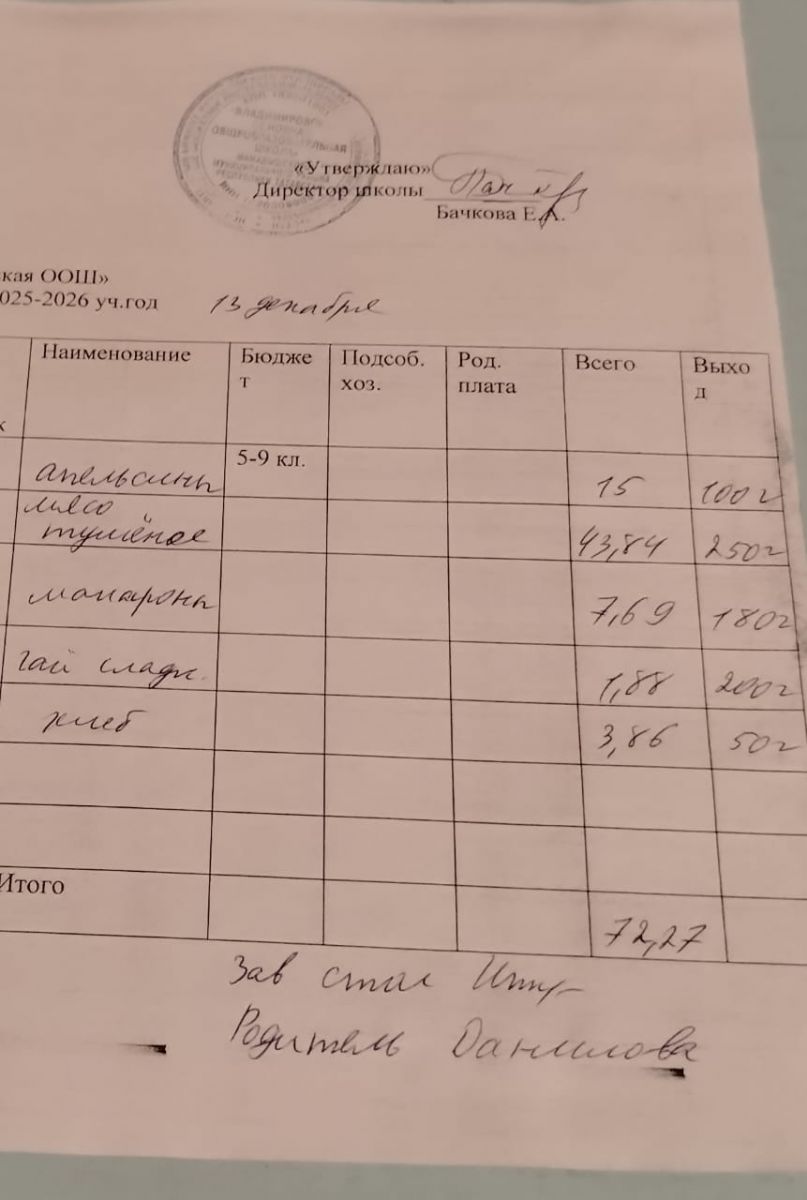 ВЛАДИМИРОВС
ОБЩЕОБРАЗОВАТЕЛЬНАЯ
ШКОЛА
«Утверждаю»
Директор школы
Бачкова Е.А.
кая ООШ»
025-2026 уч.год 13 декабря
Наименование Бюджет Подсоб. хоз. Род. плата Всего Выход
к
апельсины 5-9 кл. 15 100г
мясо
тушёное 43,84 250г
макароны 7,69 180г
чай сладк. 1,88 200г
хлеб 3,86 50г
Итого 72,27
Зав стол
Родитель Данилова